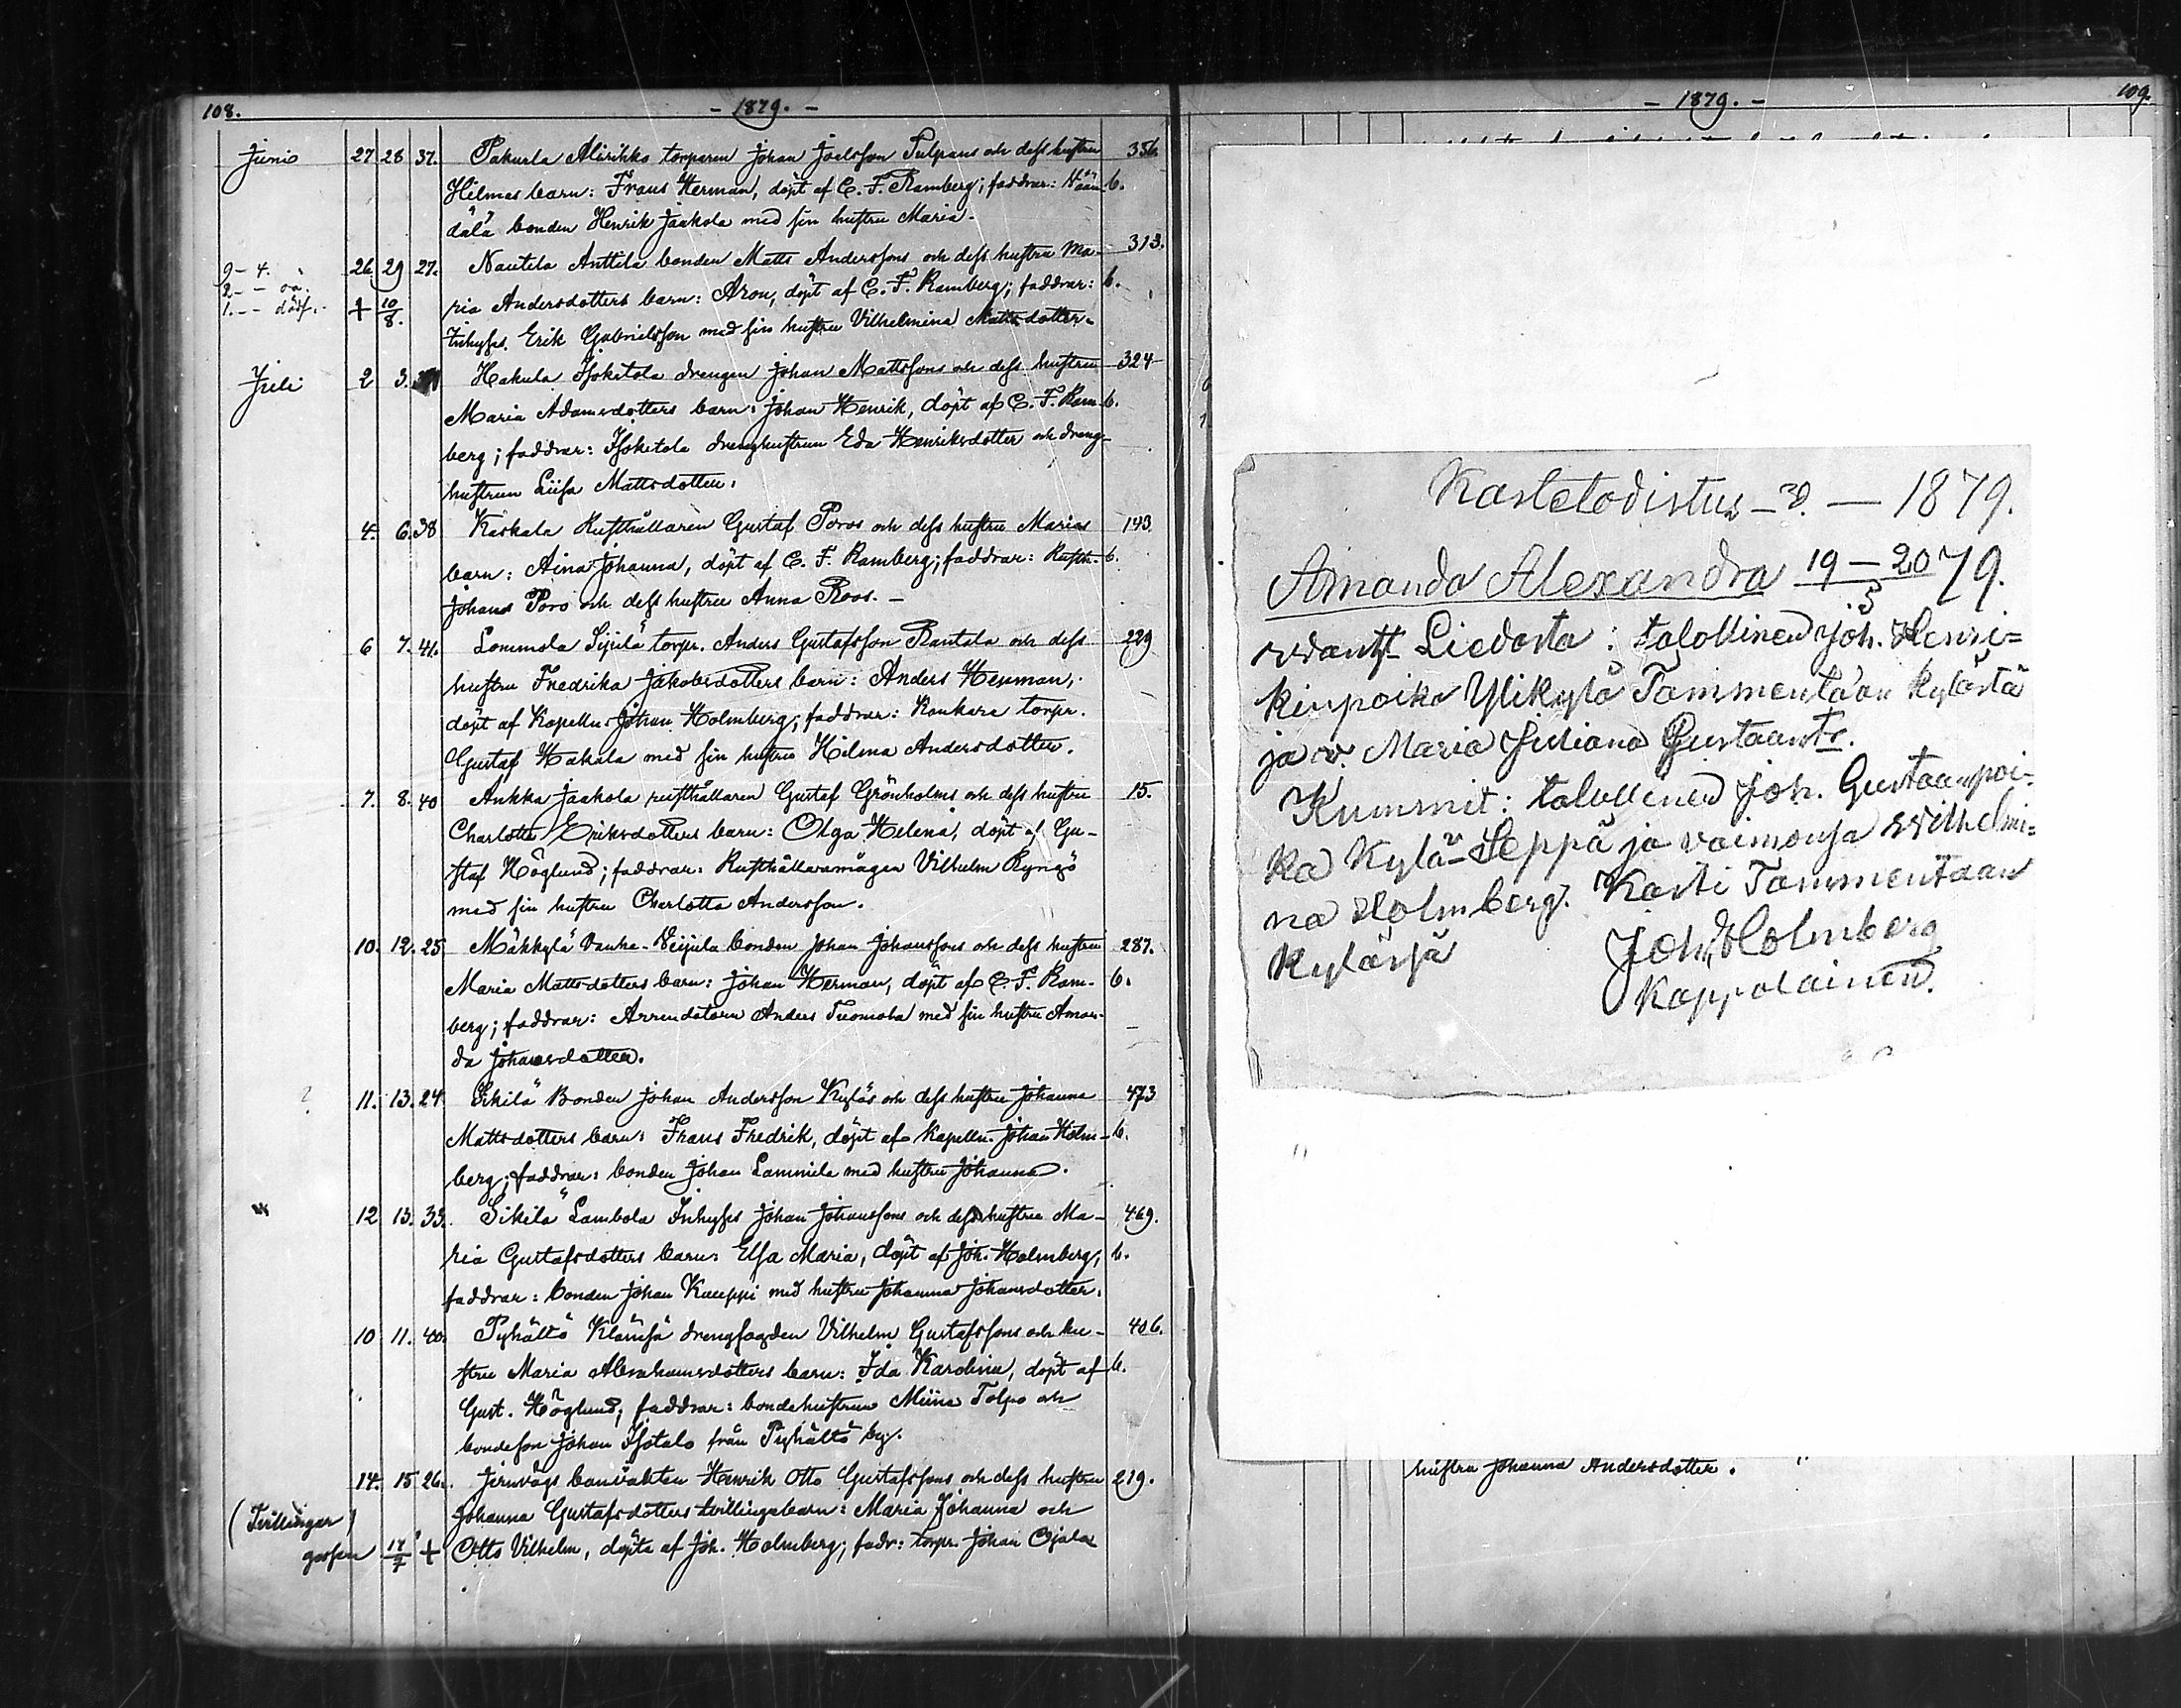 108.
- 1879. -
Junio 27 28 37. Pakurla Alirihko torparen Johan Joelsson Tulpans och dess hustru 356.
Hilmas barn: Frans Herman, döpt af C. F. Ramberg; faddrar: Nään- b.
dälä bonden Henrik Jaakola med sin hustru Maria.
9 - 4. 26. 29 27. Nautela Anttila bonden Matts Anderssons och dess hustru Ma- 313.
2 - - oä.
1. - - död. + 10/8. ria Andersdotters barn: Aron, döpt af C. F. Ramberg; faddrar: b.
Inhyses Erik Gabrielsson med sin hustru Vilhelmina Mattsdotter.
Juli 2 3. Hakula Isoketola drengen Johan Mattssons och dess hustru 324
Maria Adamsdotters barn: Johan Henrik, döpt af C. F. Ram- b.
berg; faddrar: Isoketola drenghustrun Eda Henriksdotter och dreng-
hustrun Liisa Mattsdotter.
4. 6. 38 Kaskala Rusthållaren Gustaf Poros och dess hustru Marias 143
barn: Aina Johanna, döpt af C. F. Ramberg; faddrar: Rusth. b.
Johans Poro och dess hustru Anna Roos. -
6 7. 41. Lommola Sijilä torpr. Anders Gustafsson Rantala och dess 229
hustru Fredrika Jakobsdotters barn: Anders Herman,
döpt af Kapelln. Johan Holmberg; faddrar: Kankare torpr.
Gustaf Hakala med sin hustru Hilma Andersdotter.
7. 8. 40 Ankka Jaakola rusthållaren Gustaf Grönholms och dess hustru 15.
Charlotta Eriksdotters barn: Olga Helena, döpt af Gu-
staf Höglund; faddrar: Rusthållaremågen Vilhelm Ryngö
med sin hustru Charlotta Andersson.
10. 12. 25. Mäkkylä Vanha-Seijula bonden Johan Johanssons och dess hustru 287.
Maria Mattsdotters barn: Johan Herman, döpt af C. F. Ram- b.
berg; faddrar: Arrendatorn Anders Tuomola med sin hustru Aman-
da Johansdotter.
11. 13. 24. Sikilä Bonden Johan Andersson Kyläs och dess hustru Johanna 473
Mattsdotters barn: Frans Fredrik, döpt af Kapelln. Johan Holm- b.
berg; faddrar: bonden Johan Lammila med hustru Johanna.
12 13. 33. Sikilä Lambola Inhyses Johan Johanssons och dess hustru Ma- 469.
ria Gustafsdotters barn: Elsa Maria, döpt af Joh. Holmberg, b.
faddrar: bonden Johan Knuppi med hustru Johanna Johansdotter.
10 11. 40. Pyhältö Klämsä drengfogden Vilhelm Gustafssons och hu- 406.
stru Maria Abrahamsdotters barn: Ida Karolina, döpt af b.
Gust. Höglund, faddrar: bondehustrun Miina Tolpo och
bondeson Johan Isotalo från Pyhältö by.
14. 15 26. Jernvägs banvakten Henrik Otto Gustafssons och dess hustru 219.
(Tvillingar) Johanna Gustafsdotters tvillingabarn: Maria Johanna och
gossen 17/7 + Otto Vilhelm, döpta af Joh. Holmberg; fadr: torpr. Johan Ojala
- 1879. -
109.
Kastetodistus - - 1879.
Amanda Alexandra 19 - 20/5 79.
Liedosta: talollinen Joh. Henri=
kinpoika Ylikylä Tammentaan kylästä
ja v. Maria Juliana Gustaantr.
Kummit: talollinen Joh. Gustaanpoi-
ka Kylä-Seppä ja vaimonsa Wilhelmi=
na Holmberg. Kasti Tammentaan
kylässä Joh. Holmberg
Kappalainen.
hustru Johanna Andersdotter.